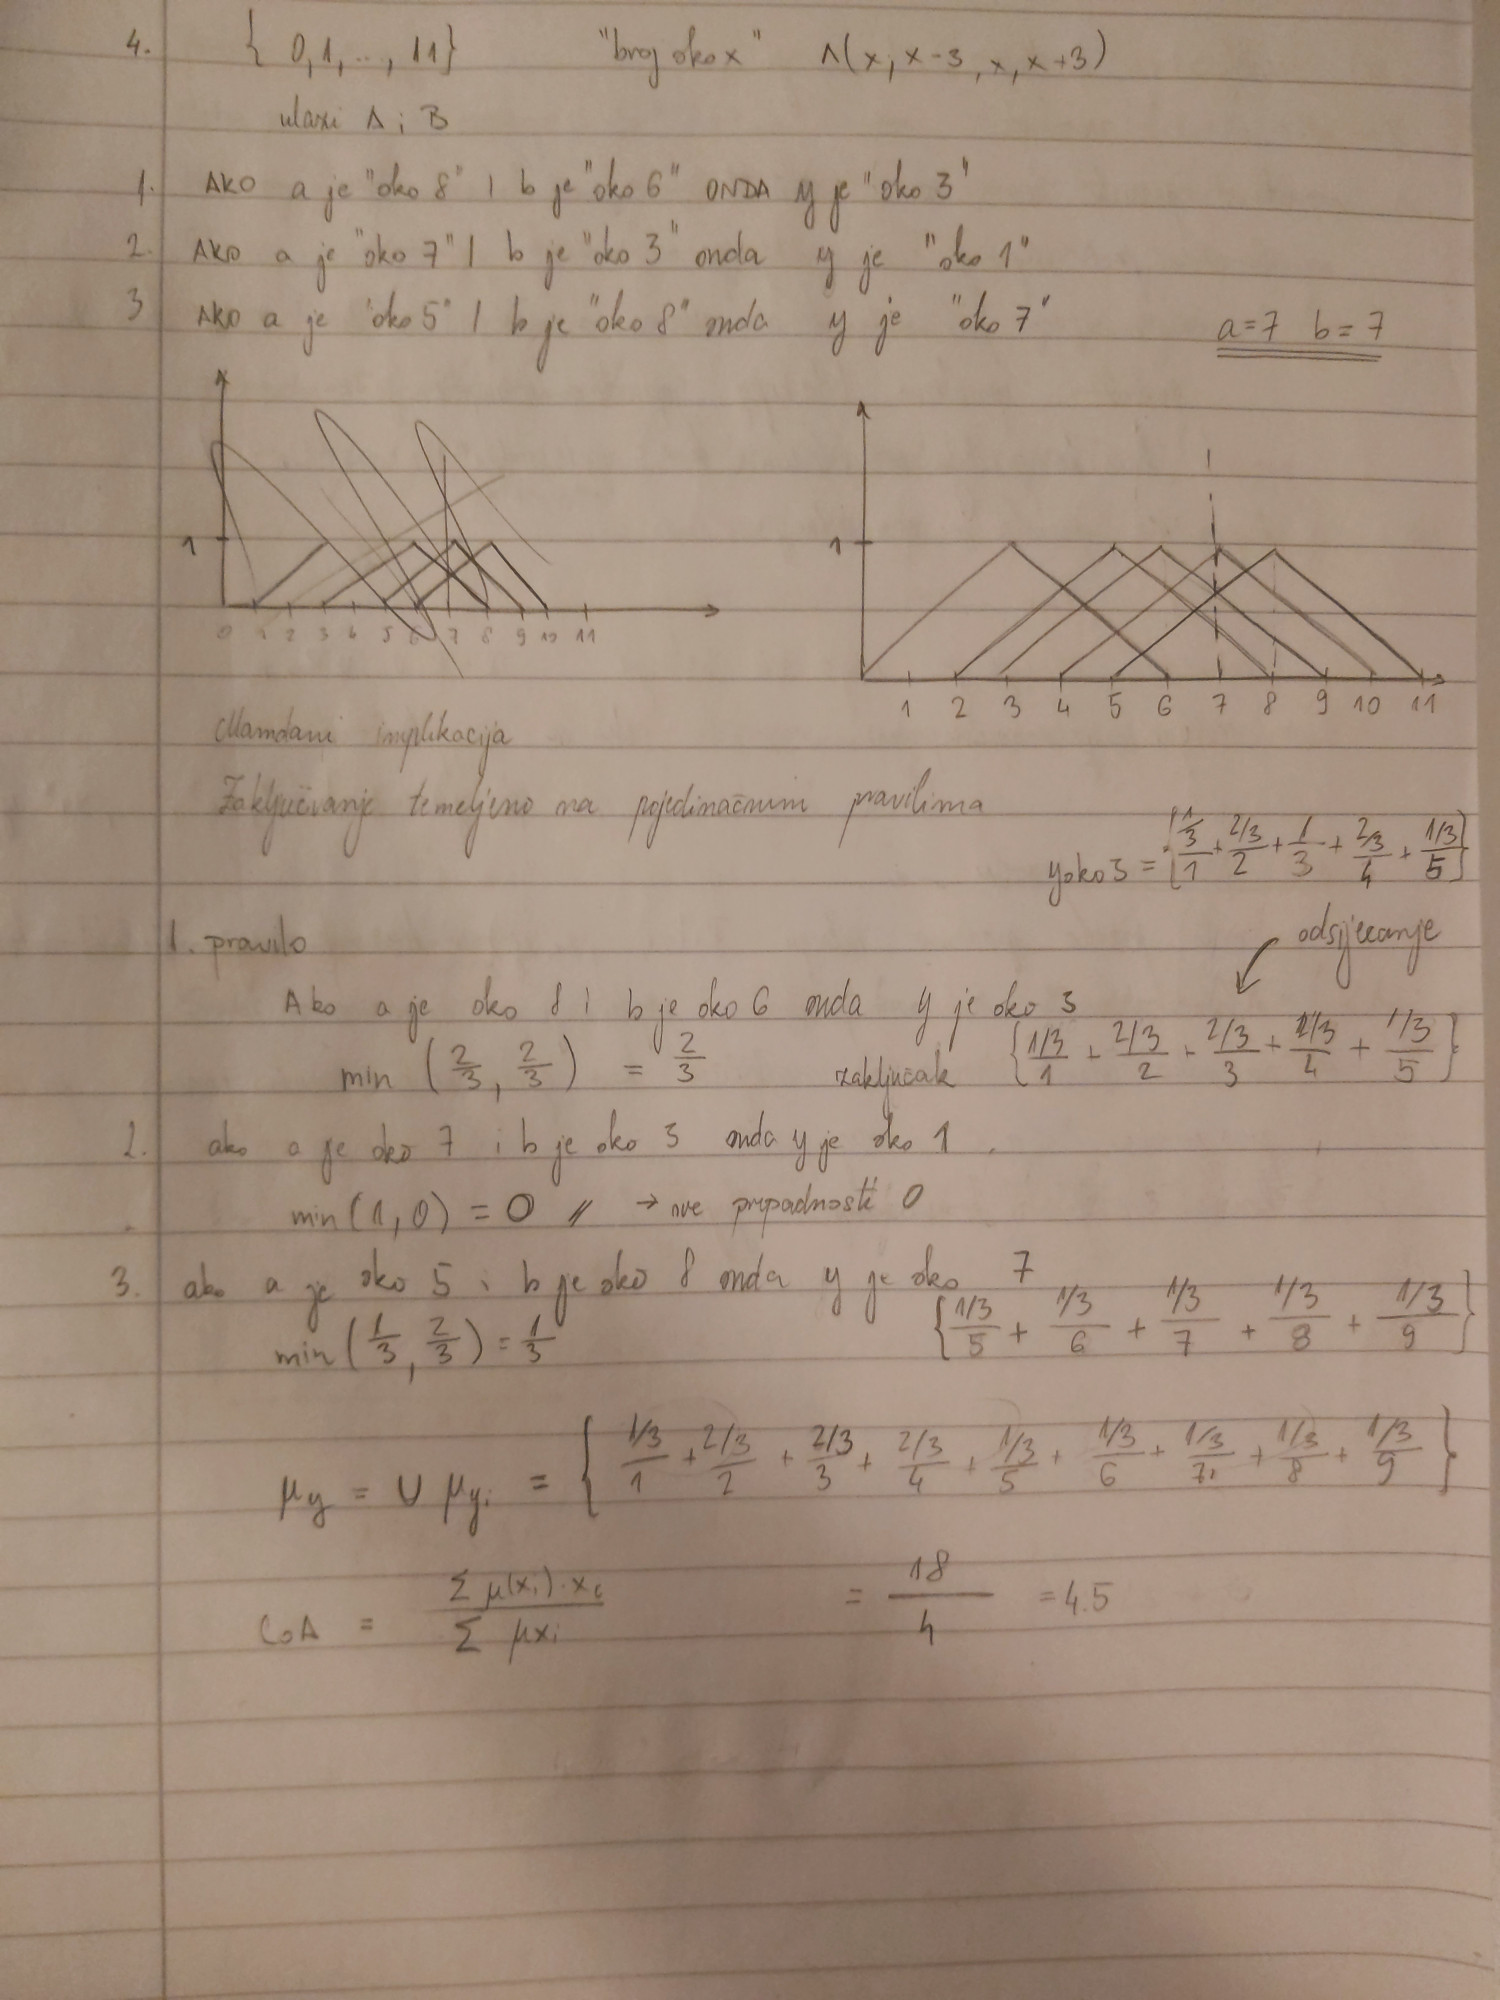 4. { 0,1,..., 11} "broj oko x" Λ(x, x-3, x, x+3)
ulazi A i B
1. AKO a je "oko 8" I b je "oko 6" ONDA y je "oko 3"
2. AKO a je "oko 7" I b je "oko 3" onda y je "oko 1"
3 AKO a je "oko 5" I b je "oko 8" onda y je "oko 7"
a=7 b=7
1
0 1 2 3 4 5 6 7 8 9 10 11
1
1 2 3 4 5 6 7 8 9 10 11
Mamdani implikacija
Zaključivanje temeljeno na pojedinačnim pravilima
y oko 3 = {1/3/1 + 2/3/2 + 1/3 + 2/3/4 + 1/3/5}
1. pravilo
odsijecanje
Ako a je oko 8 i b je oko 6 onda y je oko 3
min (2/3, 2/3) = 2/3 zaključak {1/3/1 + 2/3/2 + 2/3/3 + 2/3/4 + 1/3/5}
2. ako a je oko 7 i b je oko 3 onda y je oko 1.
min(1,0) = 0 // → sve pripadnosti 0
3. ako a je oko 5 i b je oko 8 onda y je oko 7
min(1/3, 2/3) = 1/3 {1/3/5 + 1/3/6 + 1/3/7 + 1/3/8 + 1/3/9}
μy = ∪ μyi = { 1/3/1 + 2/3/2 + 2/3/3 + 2/3/4 + 1/3/5 + 1/3/6 + 1/3/7 + 1/3/8 + 1/3/9 }
CoA = Σ μ(xi)·xi / Σ μxi = 18/4 = 4.5